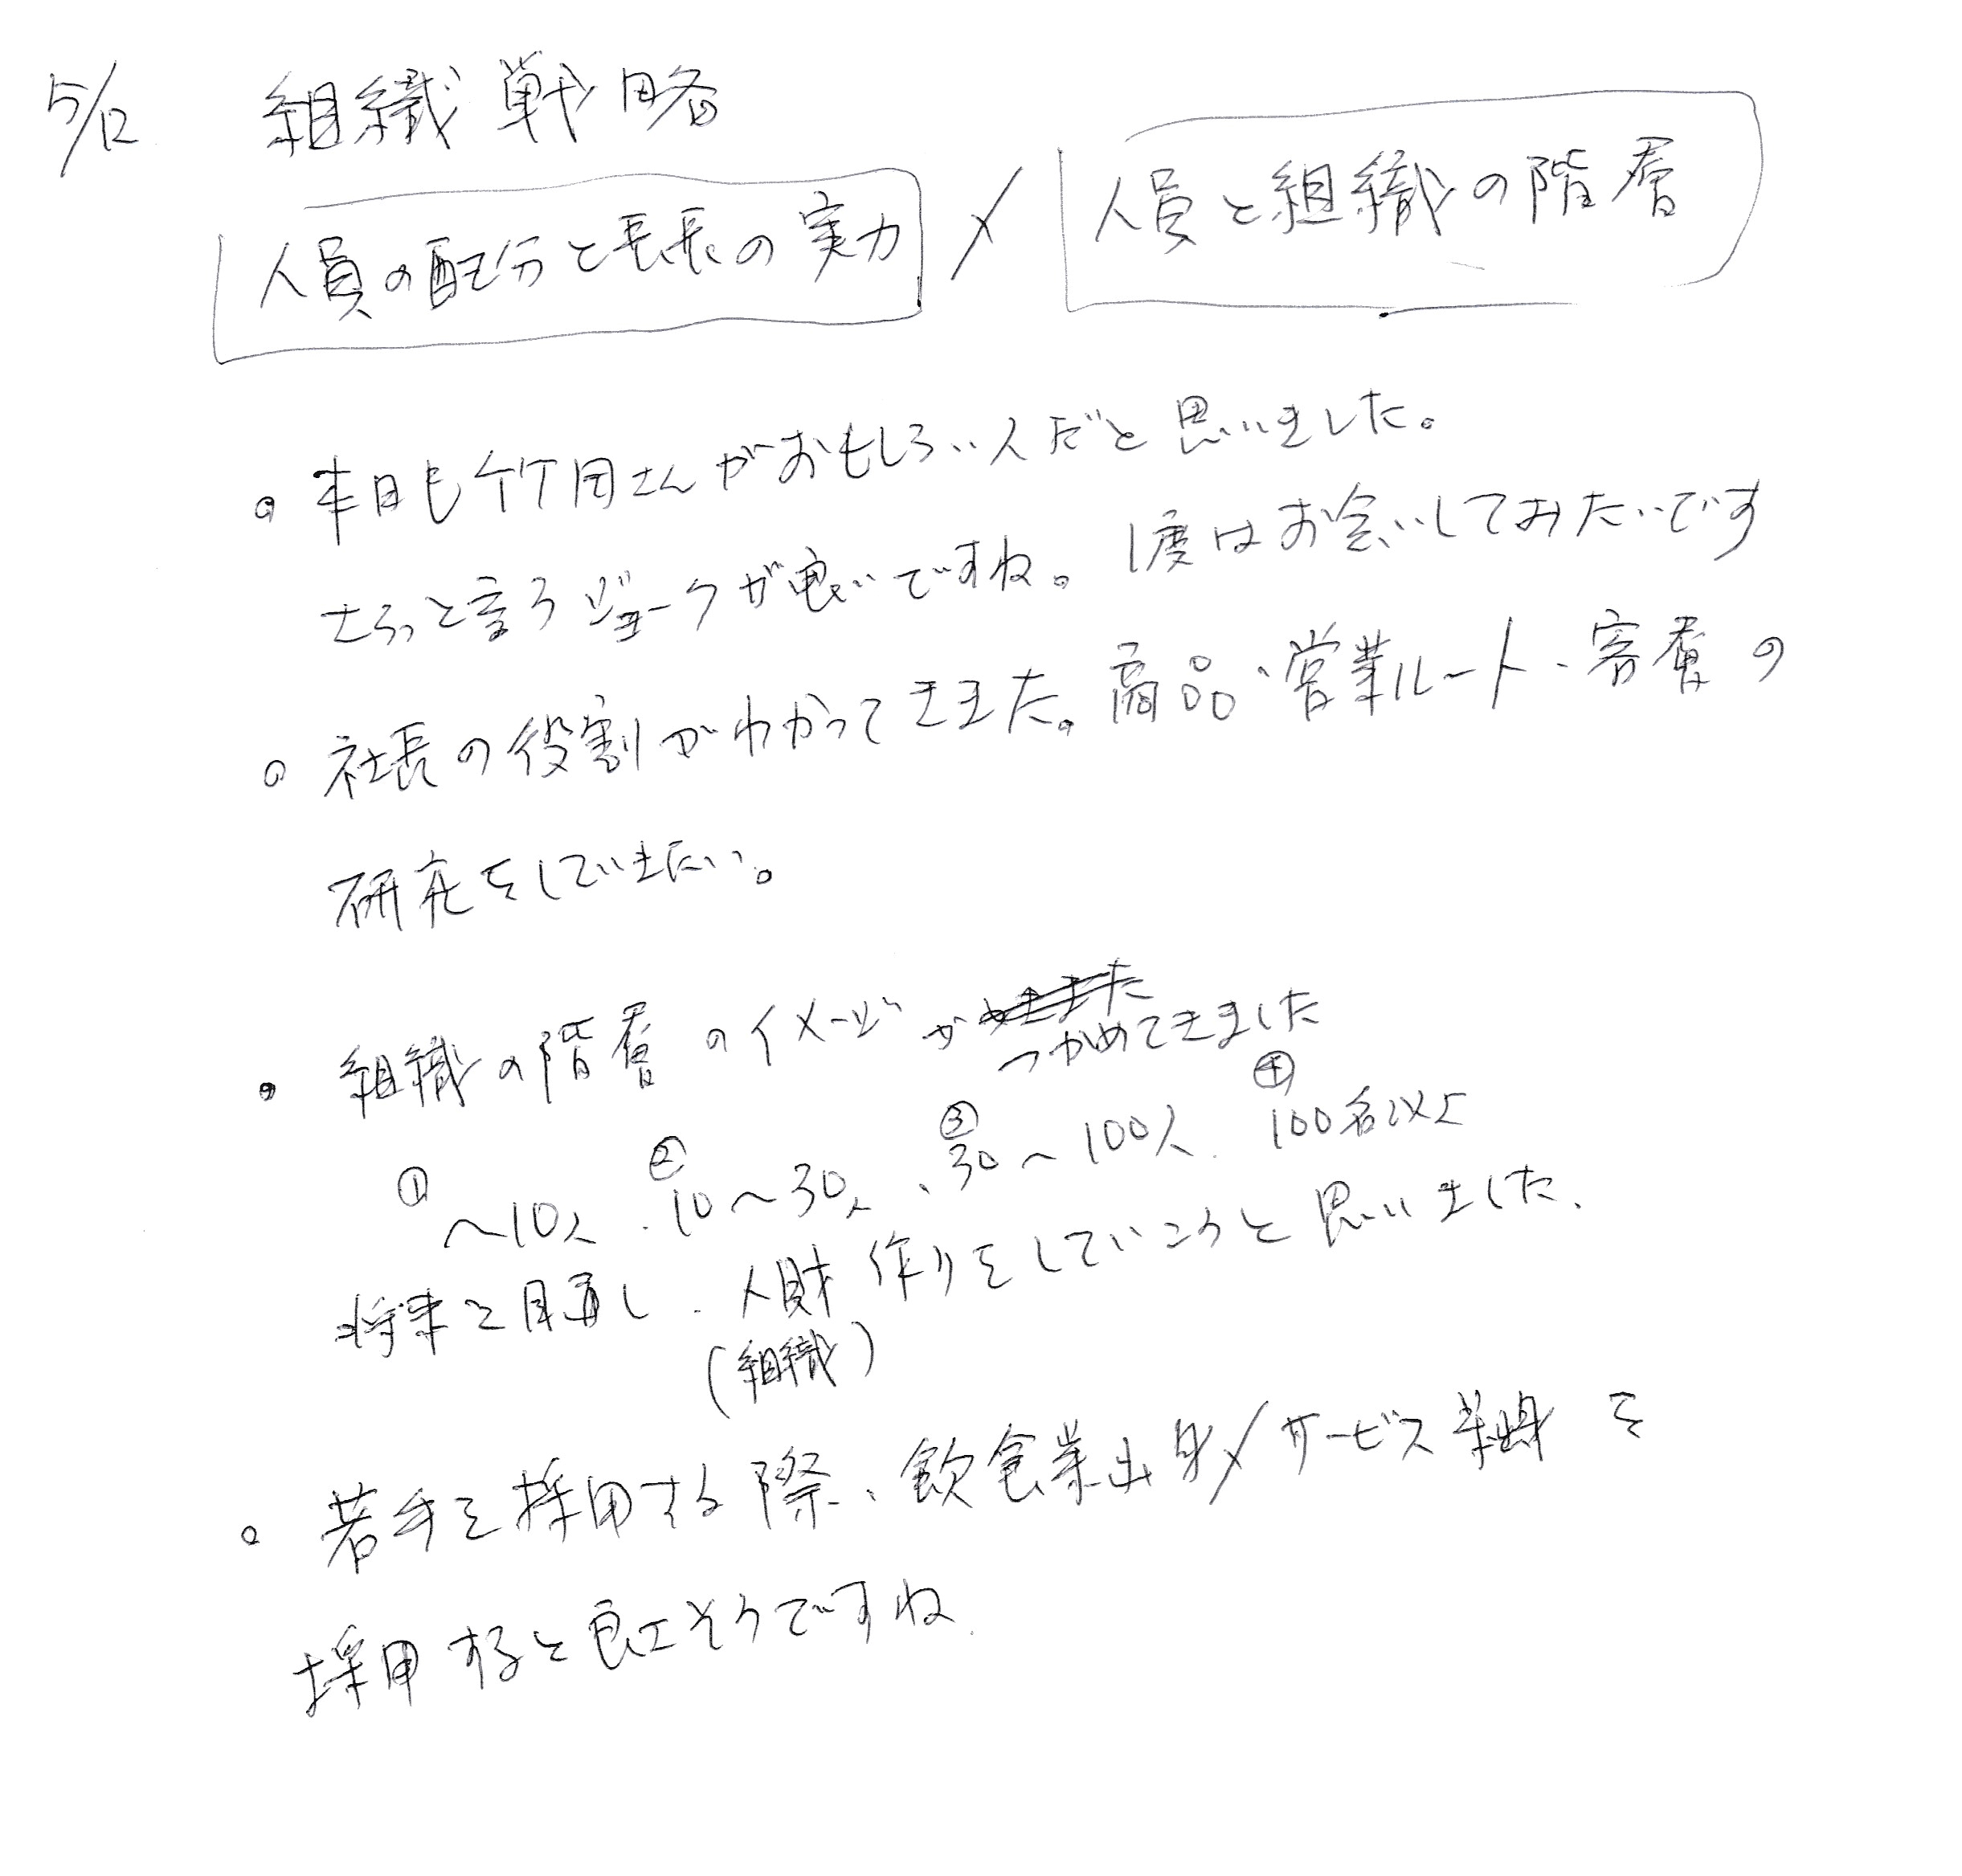 5/12 組織戦略
人員の配分と長長の実力 / 人員と組織の階層
。本日も竹田さんがおもしろい人だと思いました。
さらっと言うジョークが良いですね。1度はお会いしてみたいです
。社長の役割がわかってきました。商品・営業ルート・客層の
研究をしていきたい。
・組織の階層のイメージがつかめてきました
① ~10人、② 10~30人、③ 30~100人、④ 100名以上
将来を目指し、人財(組織)作りをしていこうと思いました、
。若手を採用する際、飲食業出身/サービス業出身を
採用すると良さそうですね、